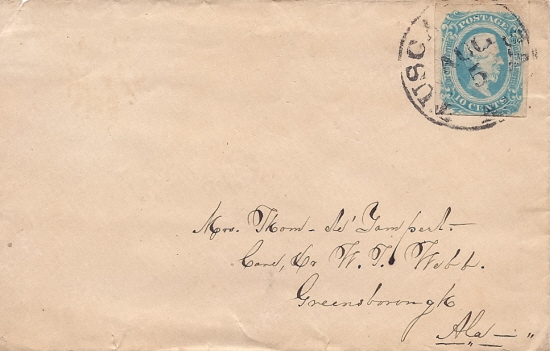 TUSCA
AUG
5
POSTAGE
10 CENTS
Mrs. Thom - de' Yampert.
Care, Dr W. T. Webb.
Greensborough
Ala